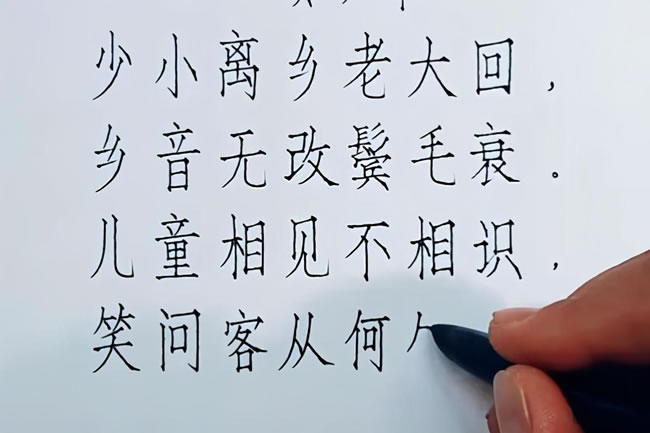 少小离乡老大回，
乡音无改鬓毛衰。
儿童相见不相识，
笑问客从何